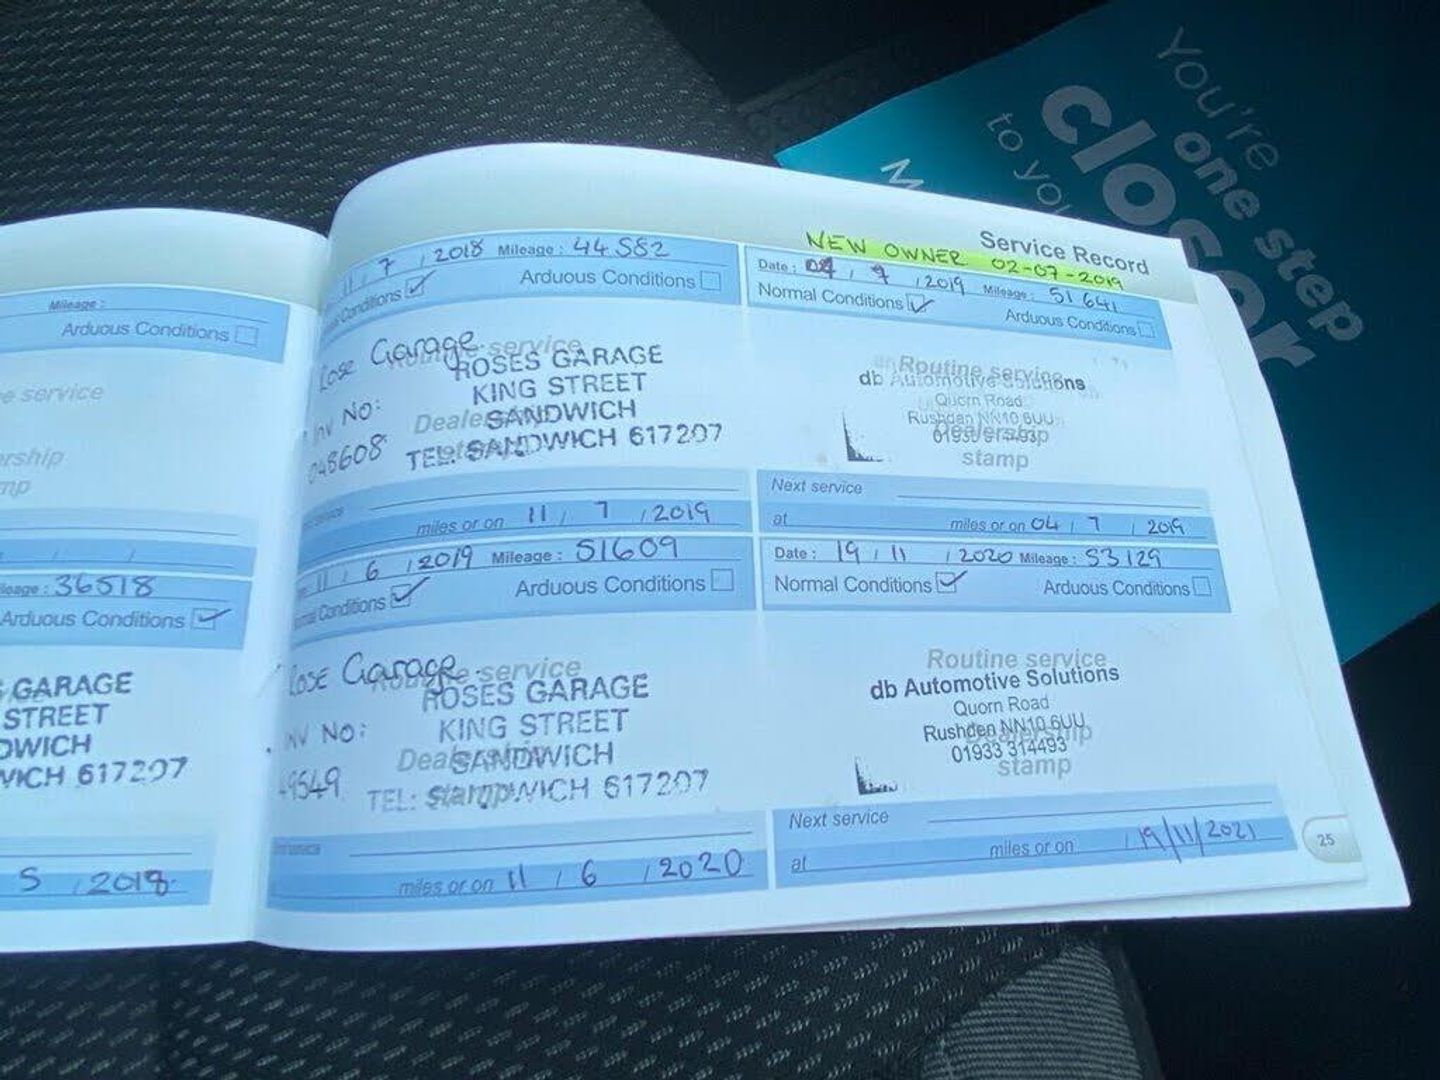 You're
one step
closer
to you
M
Mileage :
Arduous Conditions
e service
ership
mp
/ /
leage : 36518
Arduous Conditions ✓
GARAGE
STREET
DWICH
WICH 617207
5 / 2018
11 / 7 / 2018 Mileage : 44582
Conditions ✓ Arduous Conditions
Rose Garage
Routine service
ROSES GARAGE
KING STREET
SANDWICH
TEL: SANDWICH 617207
Inv No:
048608
Dealership
stamp
service
miles or on 11 / 7 / 2019
11 / 6 / 2019 Mileage : 51609
Conditions ✓ Arduous Conditions
Rose Garage
Routine service
ROSES GARAGE
KING STREET
SANDWICH
TEL: SANDWICH 617207
INV No:
49549
Dealership
stamp
service
miles or on 11 / 6 / 2020
Service Record
NEW OWNER 02-07-2019
Date : 04 / 7 / 2019 Mileage : 51641
Normal Conditions ✓ Arduous Conditions
Routine service
db Automotive Solutions
Quorn Road
Rushden NN10 6UU
Dealership
stamp
Next service
at miles or on 04 / 7 / 2019
Date : 19 / 11 / 2020 Mileage : 53129
Normal Conditions ✓ Arduous Conditions
Routine service
db Automotive Solutions
Quorn Road
Rushden NN10 6UU
01933 314493
Dealership
stamp
Next service
at miles or on 19/11/2021
25